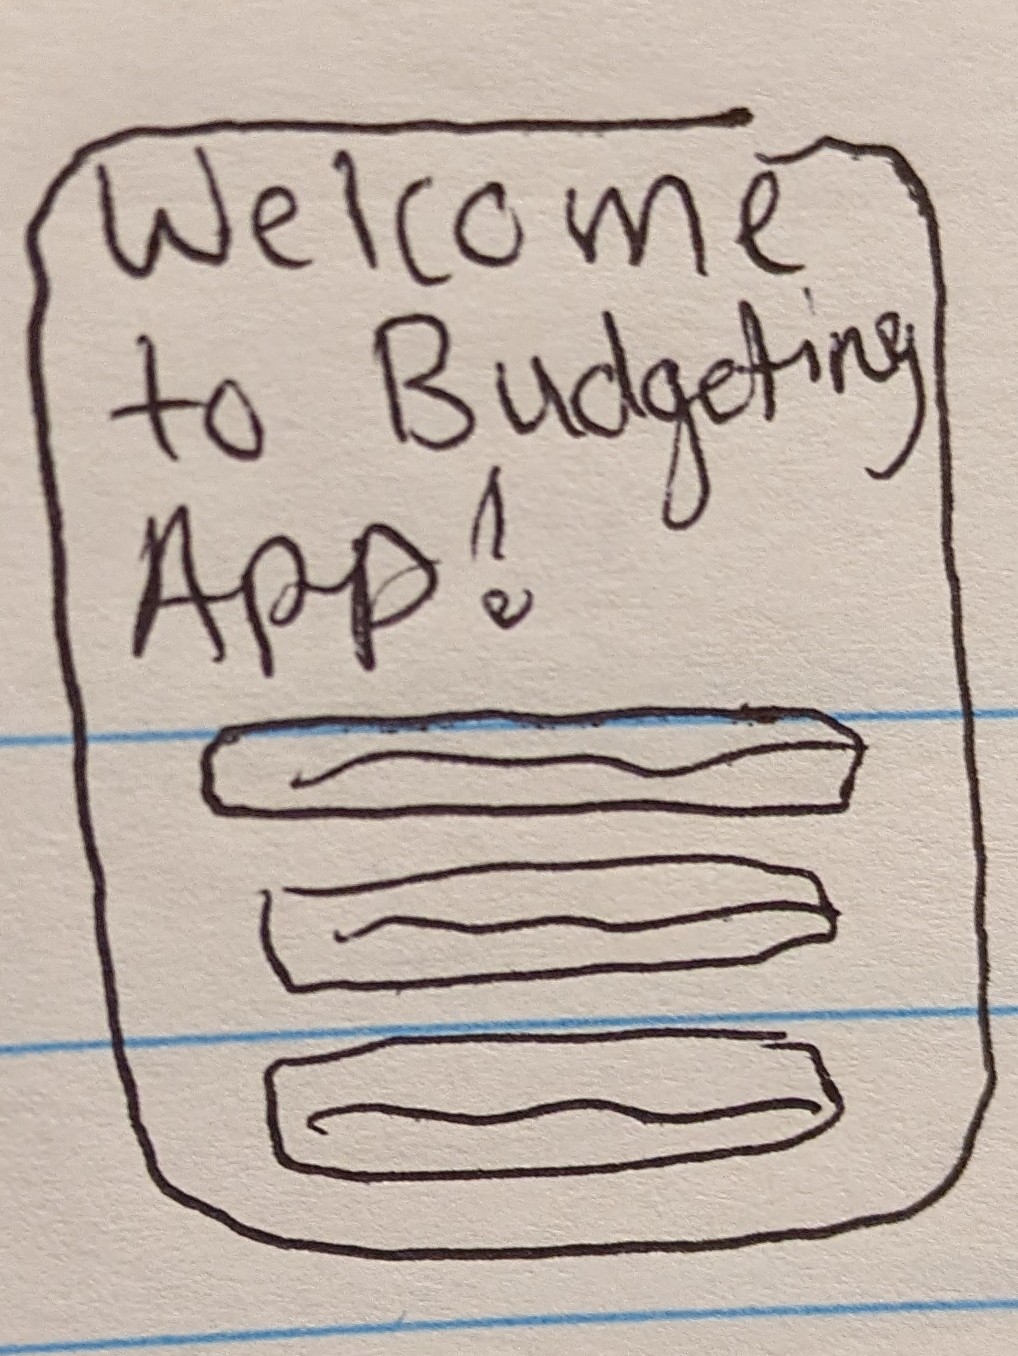 Welcome
to Budgeting
App!